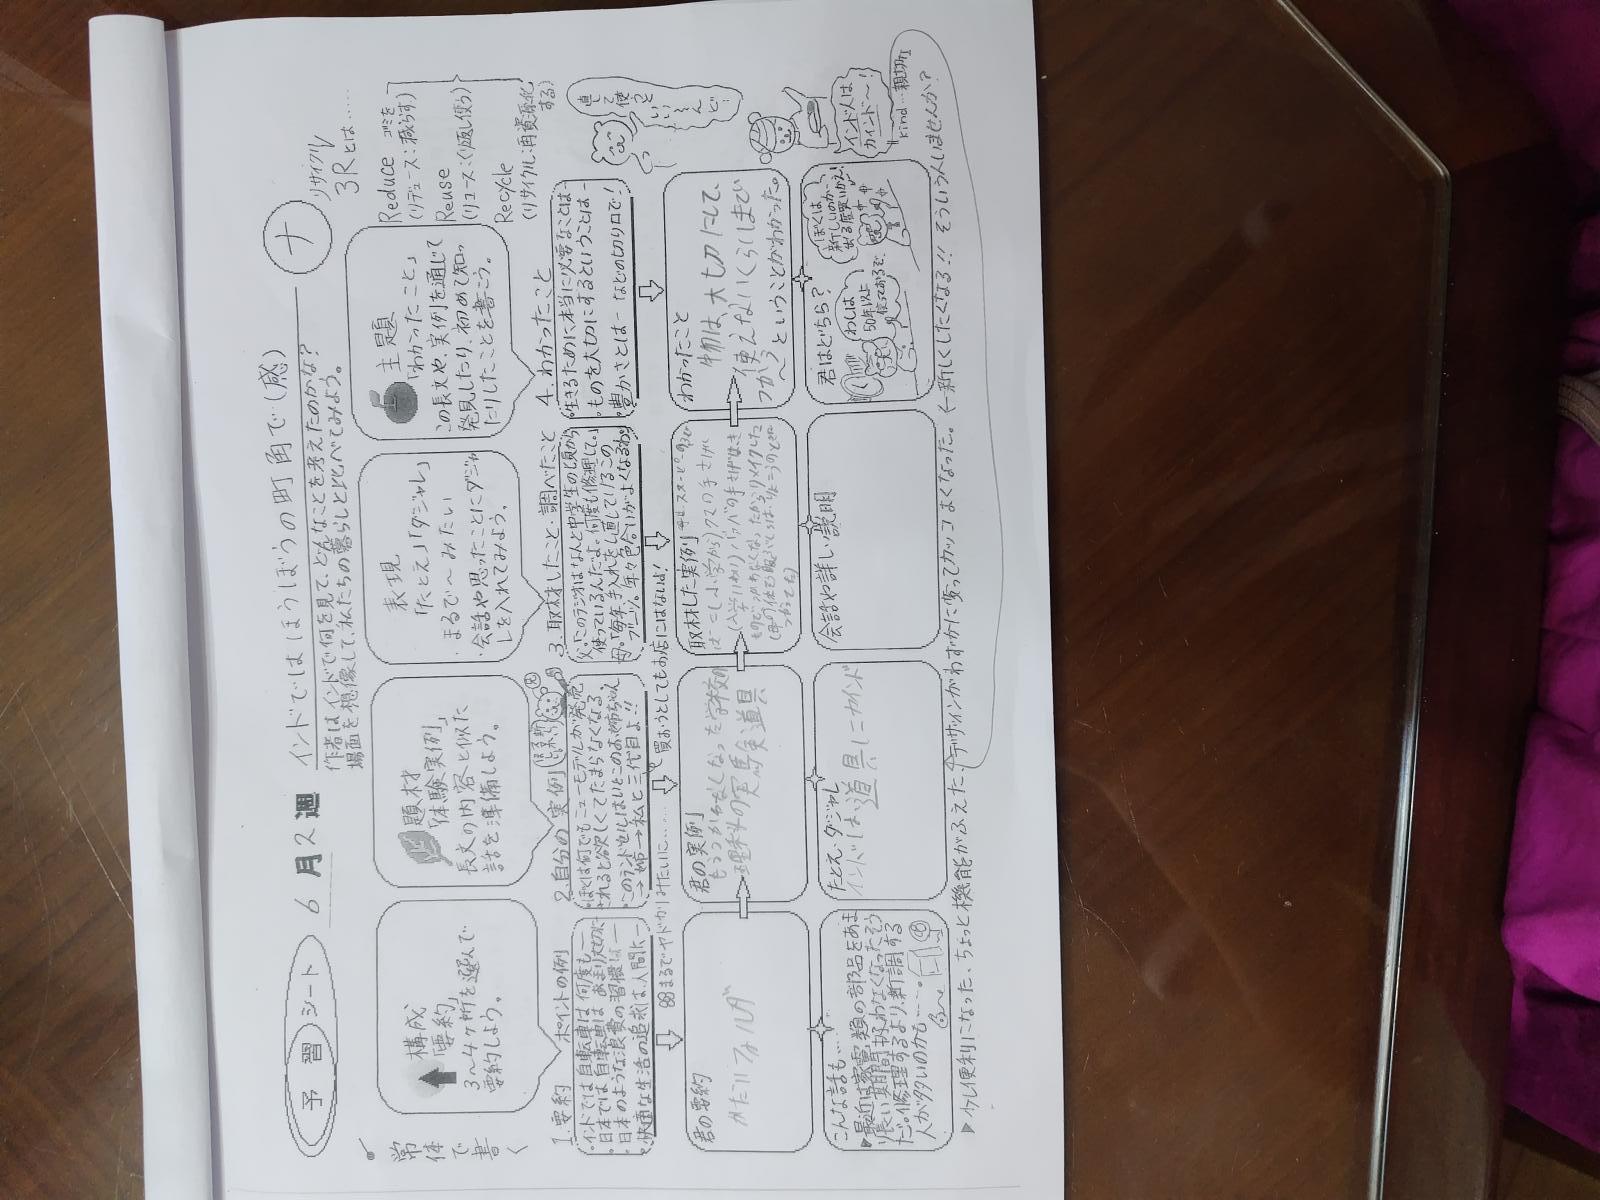 予習シート
6月2週
インドではほうぼうの町角で(感)
ナ
作者はインドで何を見て、どんなことを考えたのかな?
場面を想像して、私たちの暮らしと比べてみよう。
常体で書く
構成
「要約」
3〜4ヶ所を選んで
要約しよう。
題材
「体験実例」
長文の内容と似た
話を準備しよう。
表現
「たとえ」「ダジャレ」
・まるで〜みたい
・会話や思ったことにダジャ
レを入れてみよう。
主題
「わかったこと」
この長文や、実例を通じて
発見したり、初めて知っ
たりしたことを書こう。
リサイクル
3Rとは……
Reduce ゴミを
(リデュース:減らす)
Reuse
(リユース:くり返し使う)
Recycle
(リサイクル:再資源化
する)
1.要約 ポイントの例
・インドでは自転車は何度も―
・日本では自転車はあまり大切に―
・日本のような浪費の習慣は―
・快適な生活の追求は、人間に―
2.自分の実例
・ぼくは何でもニューモデルが発売
されると欲しくてたまらなくなる。
・このランドセルはいとこのお姉ちゃん
→姉→私と三代目よ!!
3.取材したこと・調べたこと
父「このラジオはなんと中学生の頃から
使っているんだよ。何度も修理して。」
母「毎年、手入れをし直しているこの
ブーツ。年々色合いがよくなるわ。」
4.わかったこと
・生きるために本当に必要なことは―
・ものを大切にするということは―
・豊かさとは― などの切り口で!
まるでヤドカリみたいに……
買おうとしてもお店にはないよ!
君の要約
かたいフォルダ
君の実例
もうつかわなくなった学校の
理科の実験道具
取材した実例
わかったこと
物は、大切にして、
使えないくらいまで
つかうということがわかった。
こんな話も…
▶最近は家電類の部品をあま
り長い期間扱わなくなったそう
だ。修理するより、新調する
人が多いのかも…。
たとえ、ダジャレ
インドは道具にカインド
会話や詳しい説明
君はどちら?
わしは
50年以上
使っておるぞ。
ぼくは
新しいのが
出る度買いかえ!
直して
使う
インド人は
カインド〜!
kind…親切な
▶少し便利になった、ちょっと機能がふえた、デザインがわずかに変ってカッコよくなった。←新しくしたくなる!!そういう人いませんか?